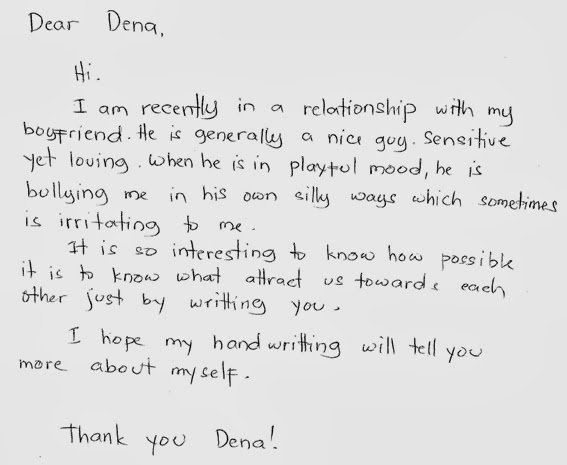 Dear Dena,
Hi.
I am recently in a relationship with my
boyfriend. He is generally a nice guy. Sensitive
yet loving. When he is in playful mood, he is
bullying me in his own silly ways which sometimes
is irritating to me.
It is so interesting to know how possible
it is to know what attract us towards each
other just by writting you.
I hope my handwritting will tell you
more about myself.
Thank you Dena!